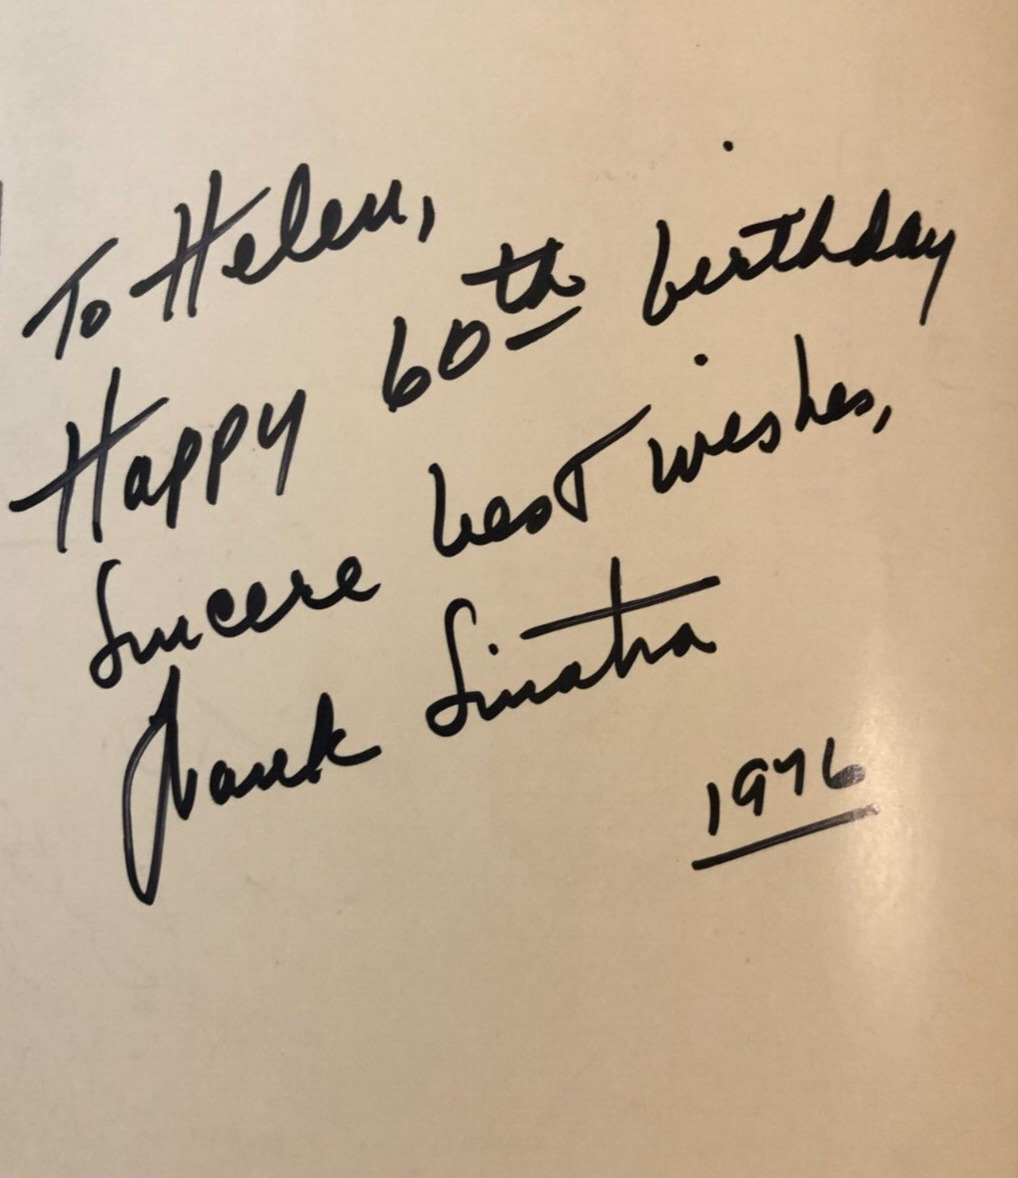 To Helen,
Happy 60th birthday
Sincere best wishes,
Frank Sinatra
1976